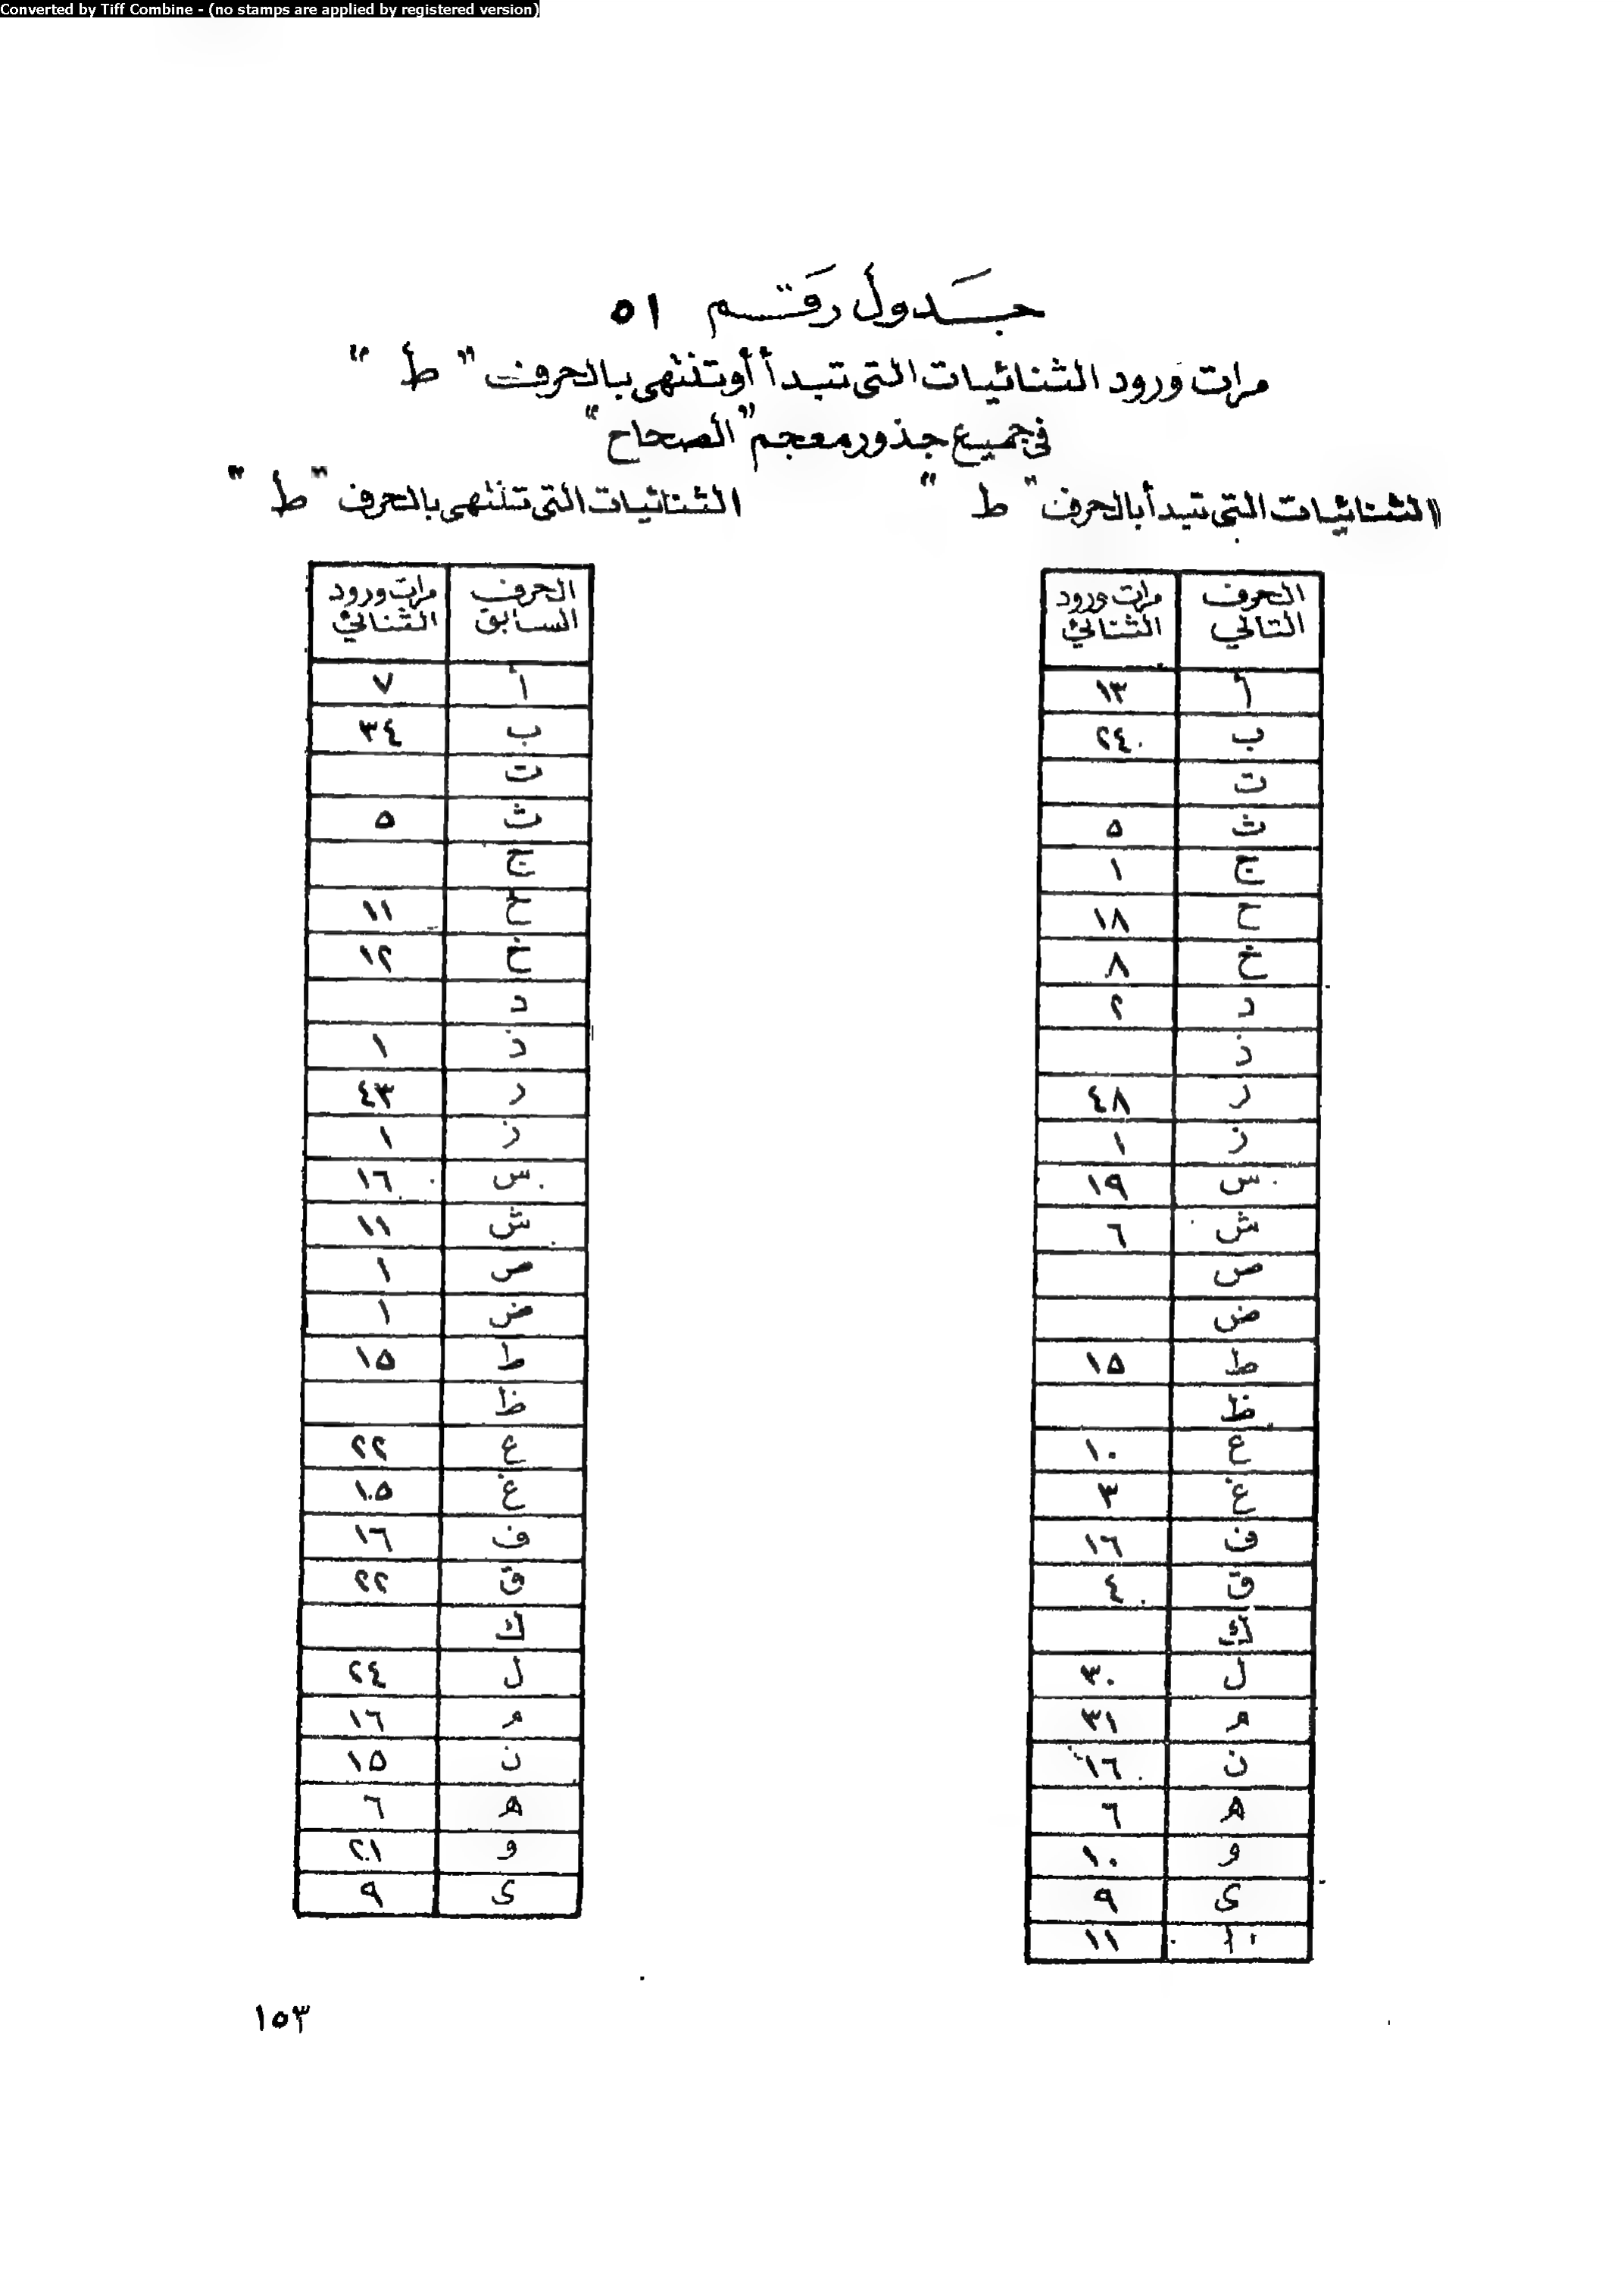 Converted by Tiff Combine - (no stamps are applied by registered version)
جدول رقم ٥١
مرات ورود الثنائيات التى تبدأ أو تنتهى بالحرف " ط "
فى جميع جذور معجم "الصحاح"
الثنائيات التى تبدأ بالحرف " ط "
الحرف التالي مرات ورود الثنائي
أ ١٣
ب ٢٤
ت
ث ٥
ج ١
ح ١٨
خ ٨
د ٢
ذ
ر ٤٨
ز ١
س ١٩
ش ٦
ص
ض
ط ١٥
ظ
ع ١٠
غ ٣
ف ١٦
ق ٤
ك
ل ٣٠
م ٣١
ن ١٦
ه ٦
و ١٠
ى ٩
ا ١١
الثنائيات التى تنتهى بالحرف " ط "
الحرف السابق مرات ورود الثنائي
أ ٧
ب ٣٤
ت
ث ٥
ج
ح ١١
خ ١٢
د
ذ ١
ر ٤٣
ز ١
س ١٦
ش ١١
ص ١
ض ١
ط ١٥
ظ
ع ٢٢
غ ١٥
ف ١٦
ق ٢٢
ك
ل ٢٤
م ١٦
ن ١٥
ه ٦
و ٢١
ى ٩
١٥٣